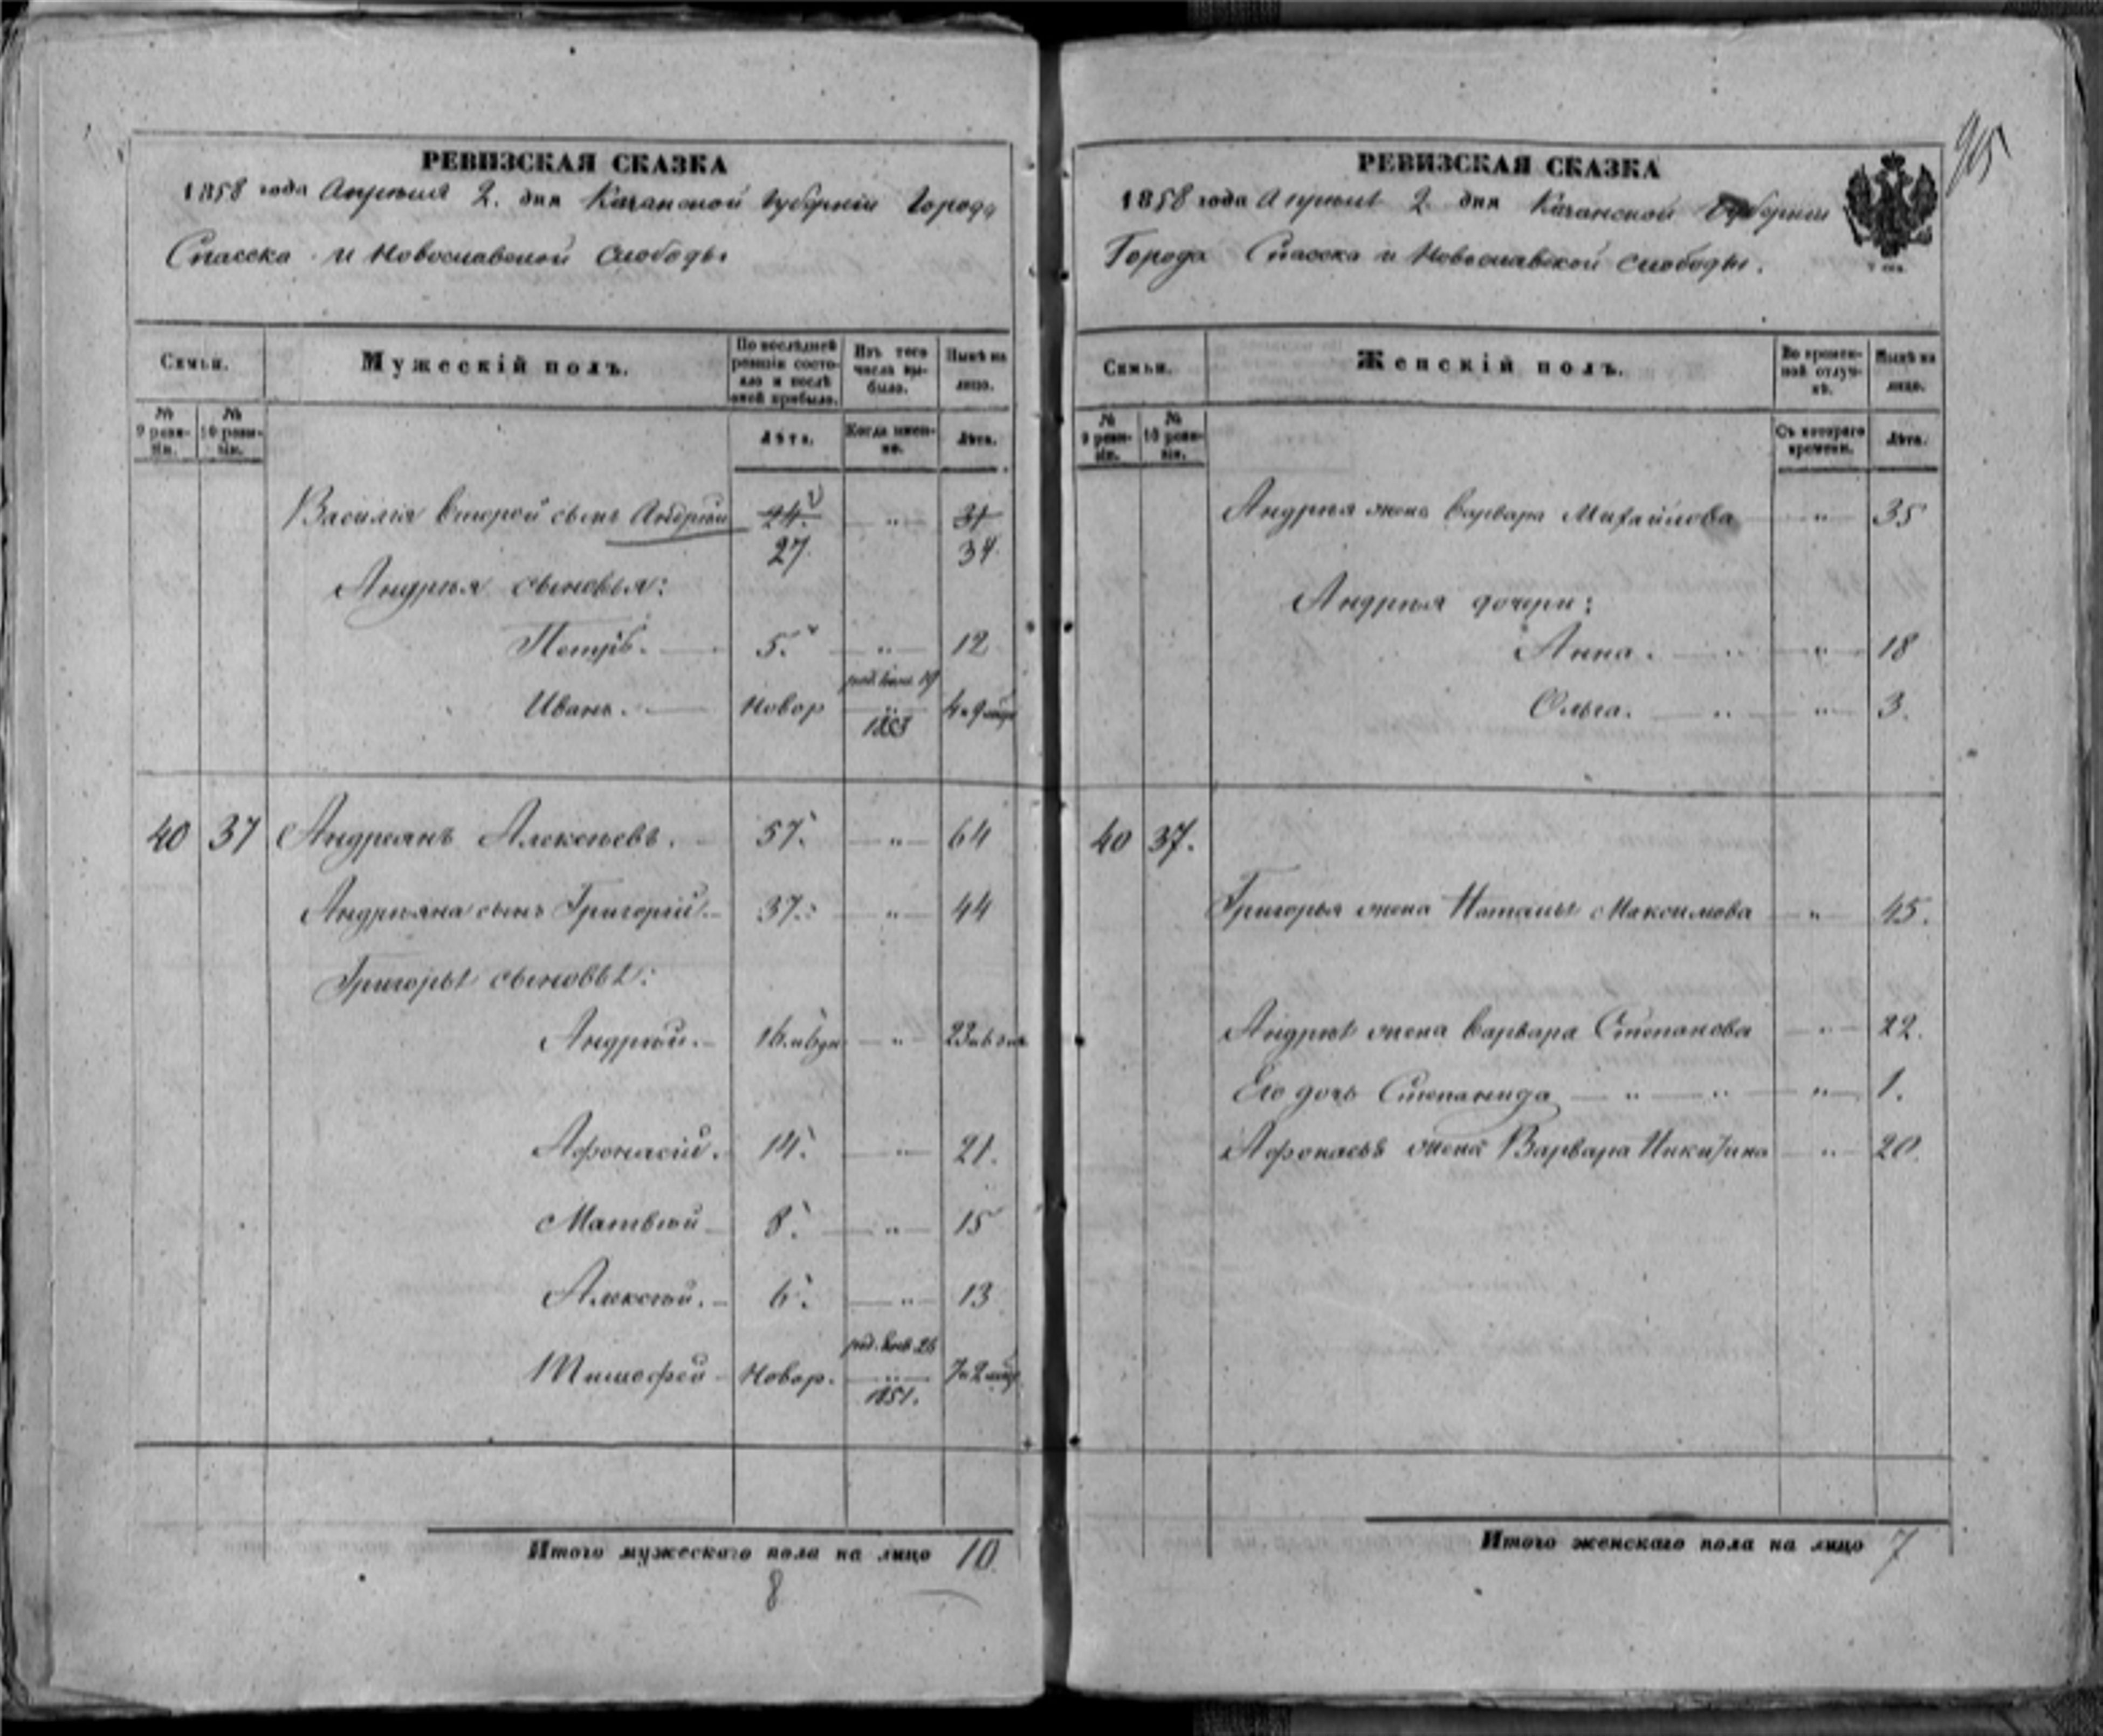 95
РЕВИЗСКАЯ СКАЗКА
1858 года Апрѣля 2. дня Казанской Губерніи Города
Спасска и Новославской Слободы
Семьи.
Мужескій полъ.
По послѣдней ревизіи состояло и послѣ оной прибыло.
Изъ того числа выбыло.
Нынѣ на лицо.
№ 9 ревизіи.
№ 10 ревизіи.
Лѣта.
Когда именно.
Лѣта.
Василія второй сынъ Андрей 24. „ 31
27. 34.
Андрѣя сыновья:
Петръ. 5. „ 12
Иванъ. Новор 4 и 9
40 37 Андреянъ Алексѣевъ. 57. „ 64
Андрѣяна сынъ Григорій. 37. „ 44
Григорья сыновья:
Андрѣй. „
Афонасій. 14. „ 21.
Матвѣй 8. „ 15
Алексѣй. 6. „ 13
род. 26
Тимофей Новор. 1851. 7 и 2
Итого мужескаго пола на лицо 10.
8
РЕВИЗСКАЯ СКАЗКА
1858 года Апрѣля 2. дня Казанской Губерніи
Города Спасска и Новославской слободы.
Семьи.
Женскій полъ.
Во временной отлучкѣ.
Нынѣ на лицо.
№ 9 ревизіи.
№ 10 ревизіи.
Съ котораго времени.
Лѣта.
Андрѣя жена Варвара Михайлова „ 35
Андрѣя дочери:
Анна. „ „ 18
Ольга. „ „ 3.
40 37.
Григорья жена Наталья Максимова „ 45.
Андрѣя жена Варвара Степанова „ 22.
Его дочь Степанида „ „ „ 1.
Афонасья жена Варвара Никитина „ 20.
Итого женскаго пола на лицо 7